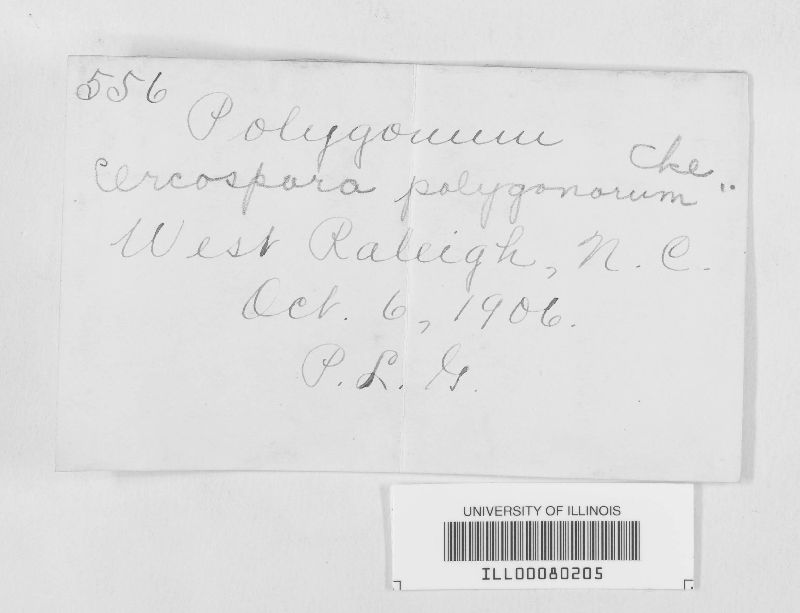 556
Polygonum
Cke
Cercospora polygonorum "
West Raleigh, N. C.
Oct. 6, 1906.
P. L. G.
UNIVERSITY OF ILLINOIS
ILL00080205